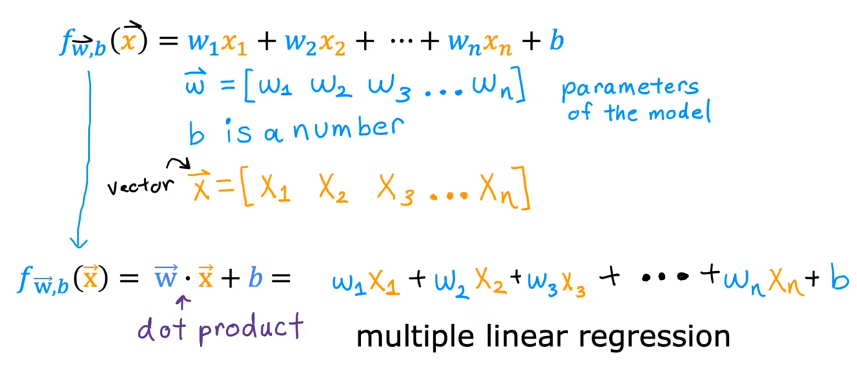 f_{w⃗,b}(x⃗) = w₁x₁ + w₂x₂ + ⋯ + wₙxₙ + b
w⃗ = [w₁ w₂ w₃ ... wₙ] parameters
of the model
b is a number
vector x⃗ = [x₁ x₂ x₃ ... xₙ]
f_{w⃗,b}(x⃗) = w⃗ · x⃗ + b = w₁x₁ + w₂x₂ + w₃x₃ + ⋯ + wₙxₙ + b
dot product
multiple linear regression